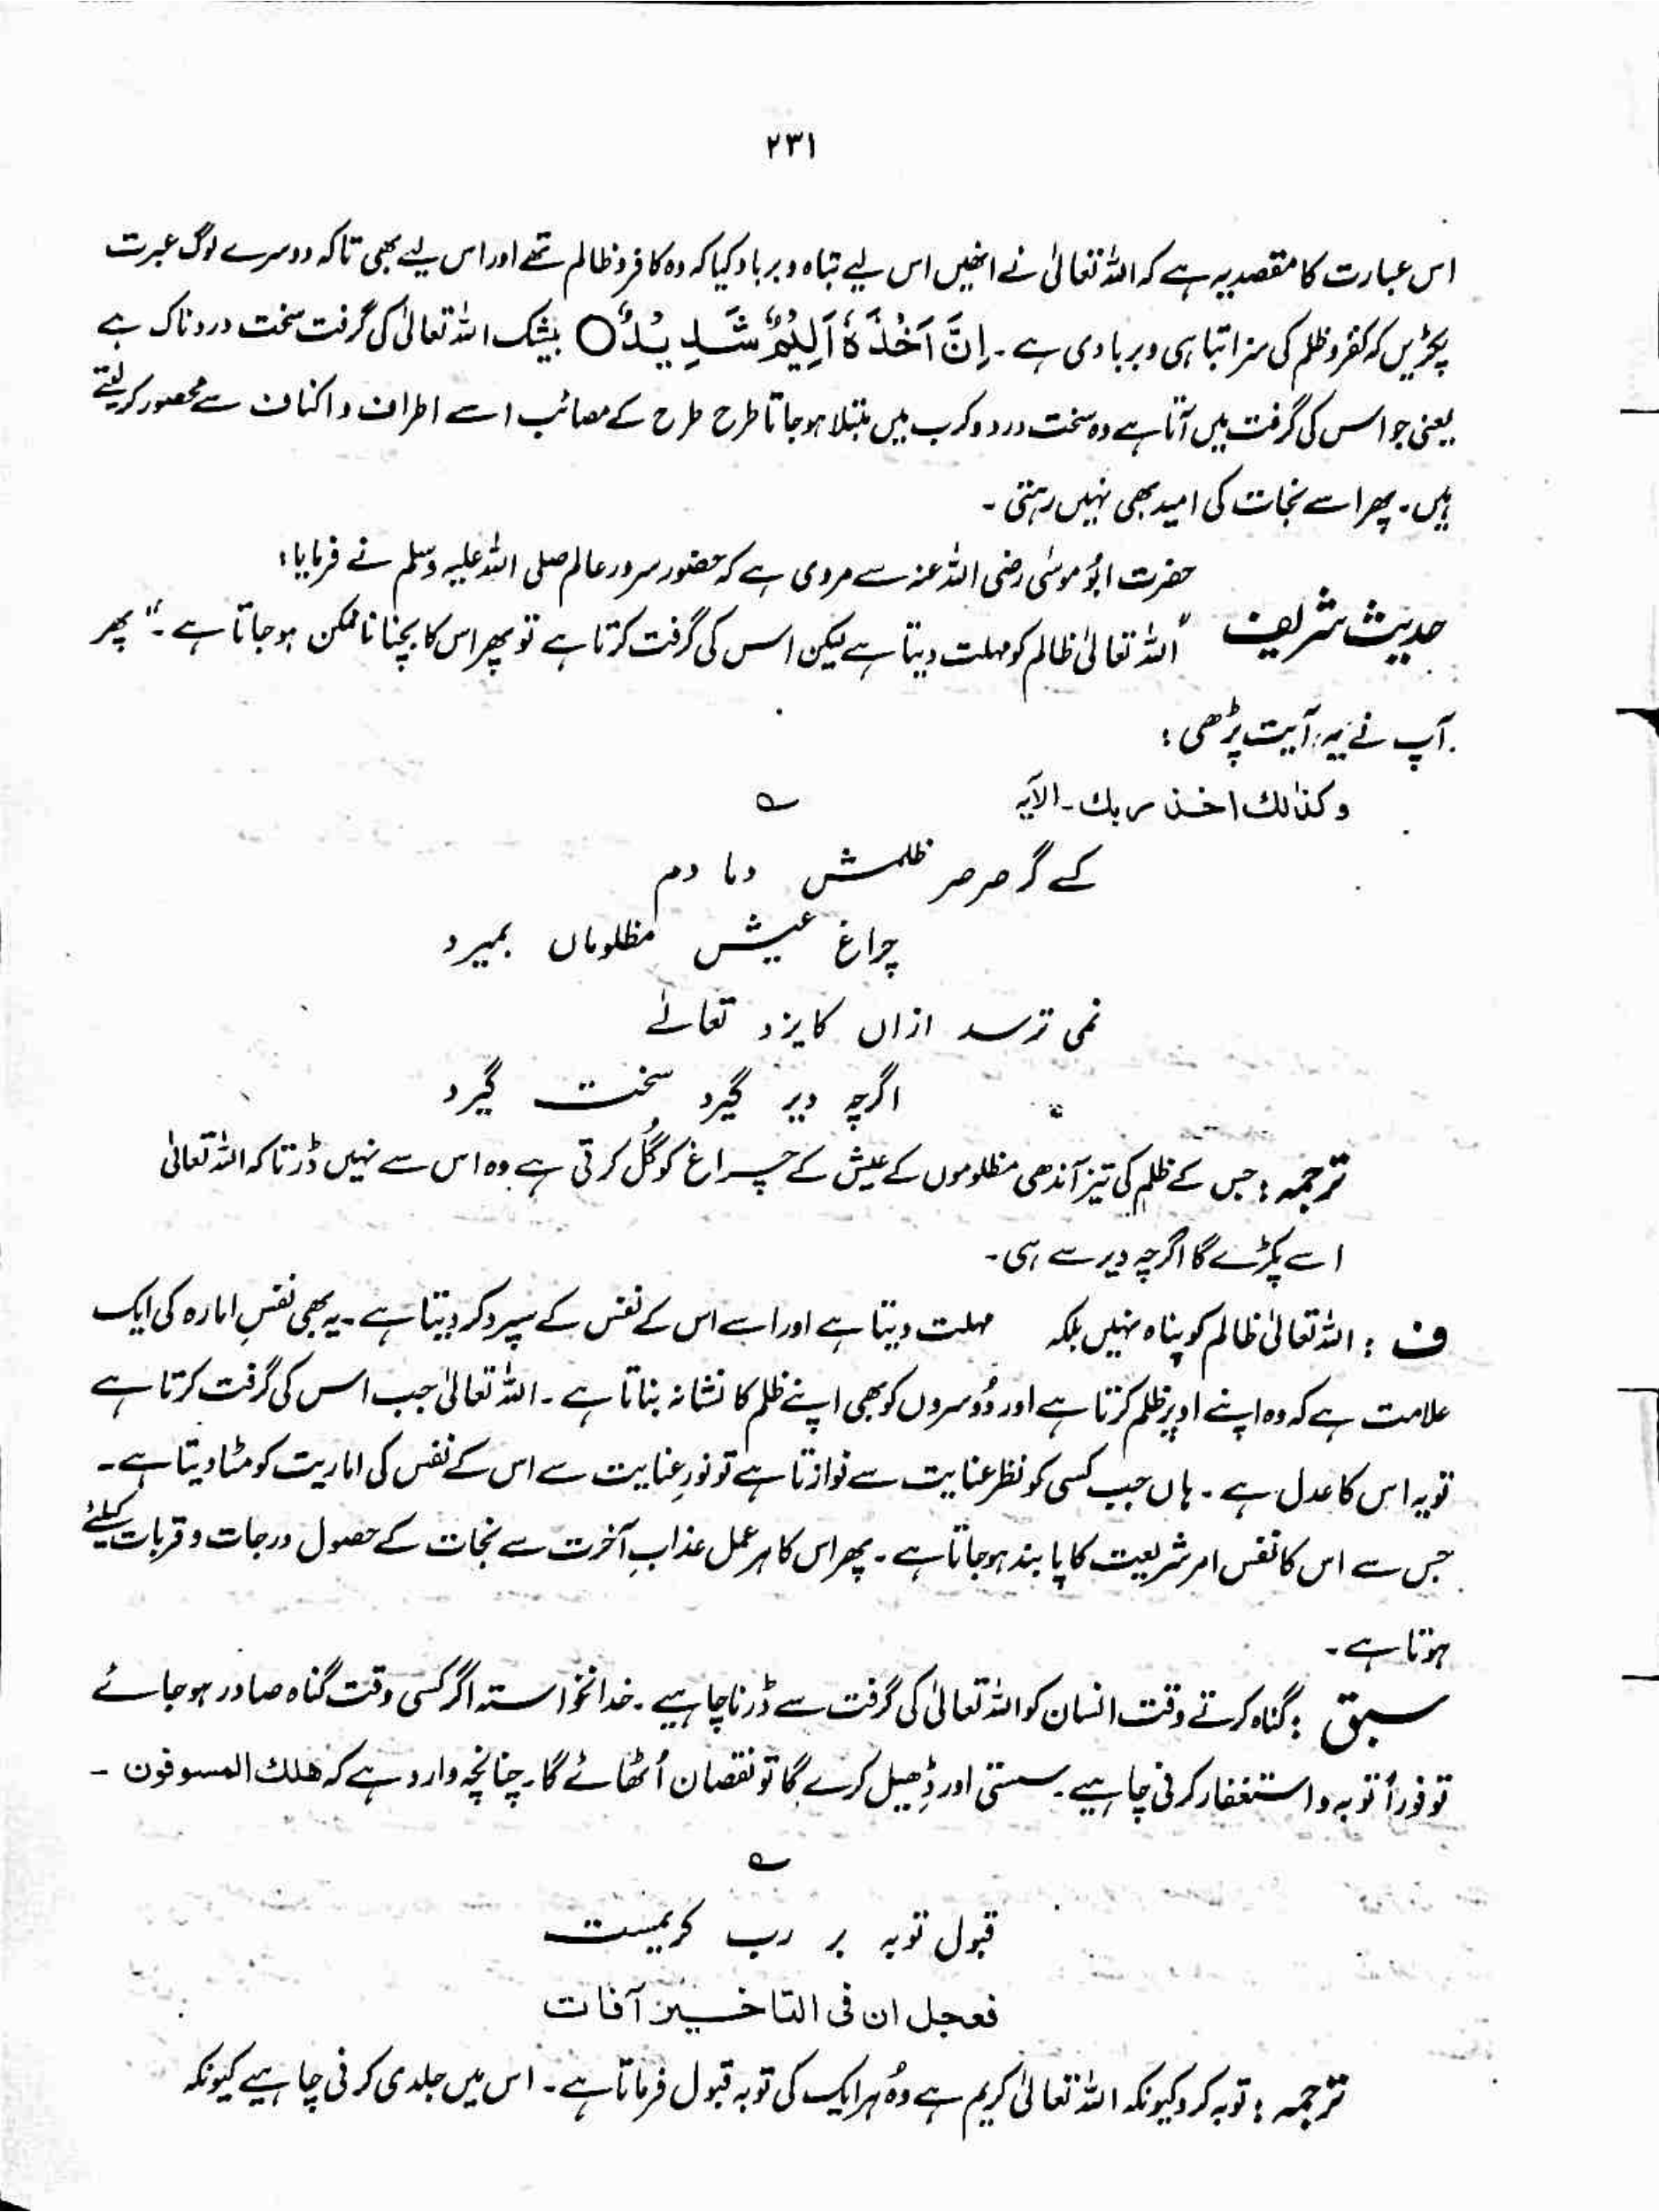 ۲۳۱
اس عبارت کا مقصد یہ ہے کہ اللہ تعالیٰ نے انھیں اس لیے تباہ و برباد کیا کہ وہ کافر و ظالم تھے اور اس لیے بھی تاکہ دوسرے لوگ عبرت
پکڑیں کہ کفر و ظلم کی سزا تباہی و بربادی ہے ۔ اِنَّ اَخْذَهٗ اَلِيْمٌ شَدِيْدٌ ○ بیشک اللہ تعالیٰ کی گرفت سخت دردناک ہے
یعنی جو اس کی گرفت میں آتا ہے وہ سخت درد و کرب میں مبتلا ہو جاتا طرح طرح کے مصائب اسے اطراف و اکناف سے محصور کر لیتے
ہیں ۔ پھر اسے نجات کی امید بھی نہیں رہتی ۔
حضرت ابُو موسٰی رضی اللہ عنہ سے مروی ہے کہ حضور سرور عالم صلی اللہ علیہ وسلم نے فرمایا :
حدیث شریف "اللہ تعالیٰ ظالم کو مہلت دیتا ہے لیکن اس کی گرفت کرتا ہے تو پھر اس کا بچنا ناممکن ہو جاتا ہے ۔" پھر
آپ نے یہ آیت پڑھی :
وکذٰلك اخذ ربك ۔ الآیہ
؎
کے گر صرصر ظلمش دما دم
چراغ عیش مظلوماں بمیرد
نمی ترسد ازاں کایزد تعالےٰ
اگرچہ دیر گیرد سخت گیرد
ترجمہ : جس کے ظلم کی تیز آندھی مظلوموں کے عیش کے چراغ کو گُل کرتی ہے وہ اس سے نہیں ڈرتا کہ اللہ تعالیٰ
اسے پکڑے گا اگرچہ دیر سے ہی ۔
ف : اللہ تعالیٰ ظالم کو پناہ نہیں بلکہ مہلت دیتا ہے اور اسے اس کے نفس کے سپرد کر دیتا ہے ۔ یہ بھی نفسِ امارہ کی ایک
علامت ہے کہ وہ اپنے اوپر ظلم کرتا ہے اور دُوسروں کو بھی اپنے ظلم کا نشانہ بناتا ہے ۔ اللہ تعالیٰ جب اس کی گرفت کرتا ہے
تو یہ اس کا عدل ہے ۔ ہاں جب کسی کو نظر عنایت سے نوازتا ہے تو نورِ عنایت سے اس کے نفس کی اماریت کو مٹا دیتا ہے ۔
جس سے اس کا نفس امر شریعت کا پابند ہو جاتا ہے ۔ پھر اس کا ہر عمل عذابِ آخرت سے نجات کے حصول درجات و قربات کیلئے
ہوتا ہے ۔
سبق : گناہ کرتے وقت انسان کو اللہ تعالیٰ کی گرفت سے ڈرنا چاہیے ۔ خدانخواستہ اگر کسی وقت گناہ صادر ہو جائے
تو فوراً توبہ و استغفار کرنی چاہیے ۔ سستی اور ڈِھیل کرے گا تو نقصان اُٹھائے گا ۔ چنانچہ وارد ہے کہ ھلك المسوفون ۔
؎
قبول توبہ بر رب کریمست
فعجل ان فی التاخیر آفات
ترجمہ : توبہ کرو کیونکہ اللہ تعالیٰ کریم ہے وُہ ہر ایک کی توبہ قبول فرماتا ہے ۔ اس میں جلدی کرنی چاہیے کیونکہ